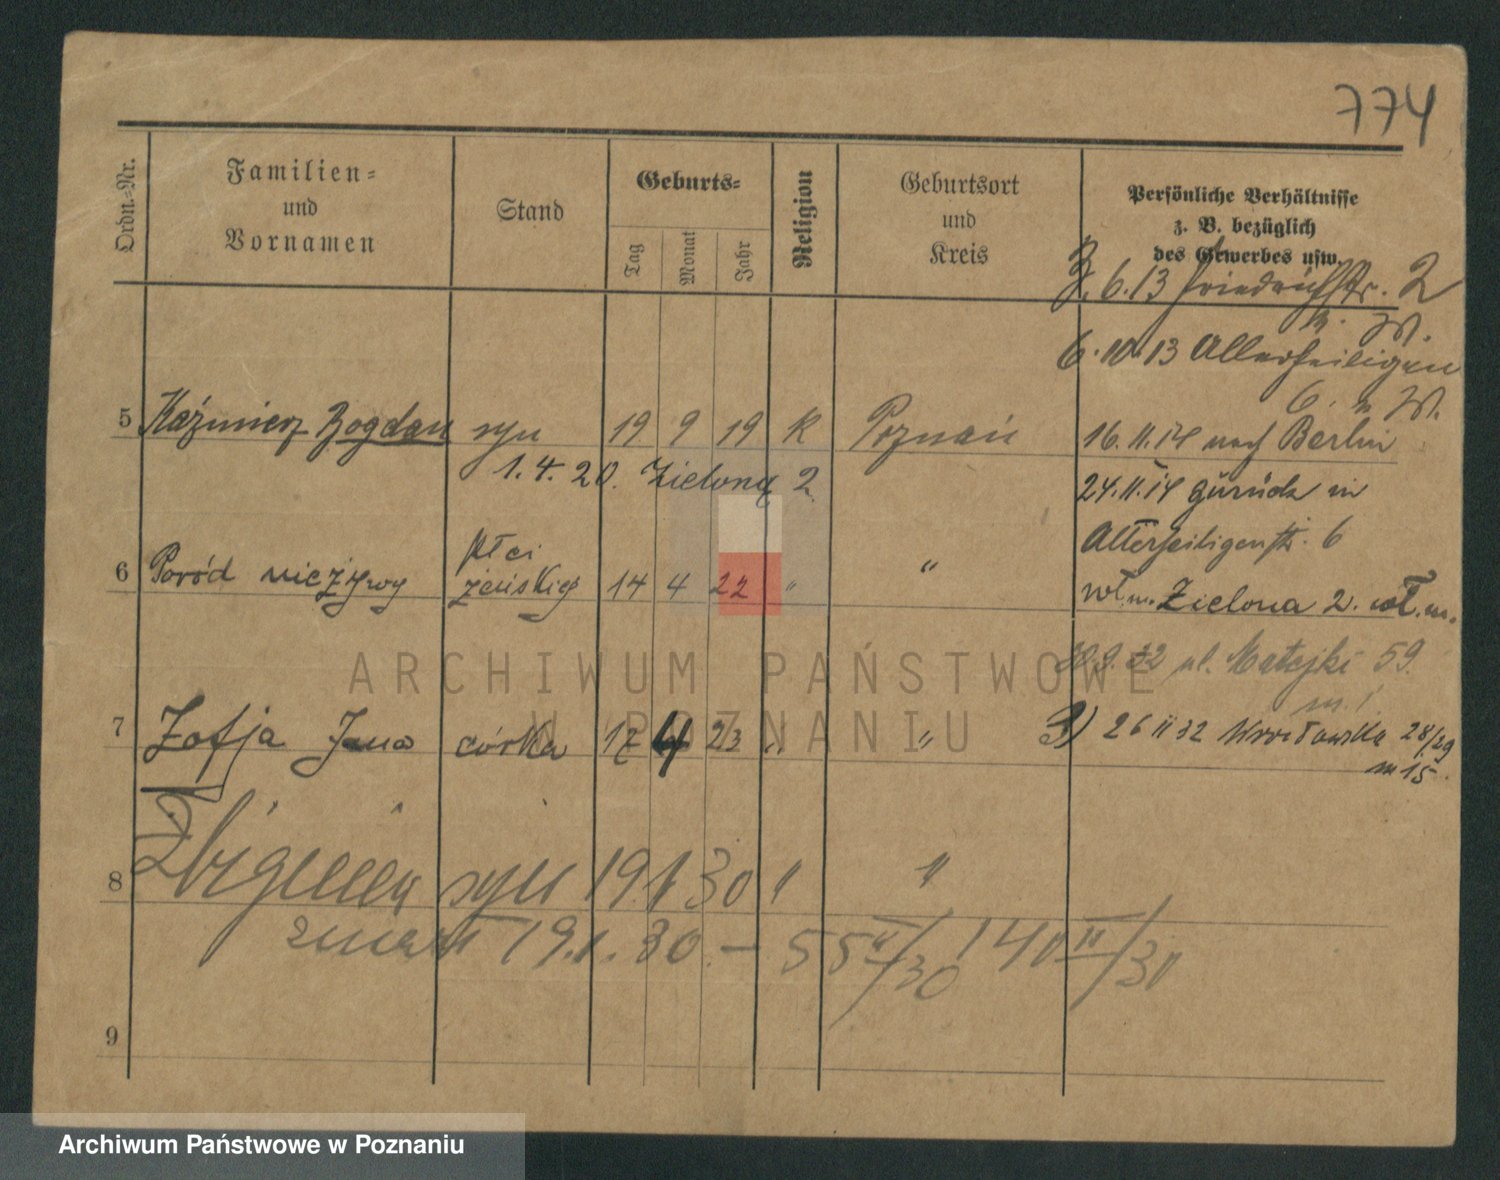 774
Ordn.-Nr.
Familien-
und
Vornamen
Stand
Geburts-
Tag
Monat
Jahr
Religion
Geburtsort
und
Kreis
Persönliche Verhältnisse
z. B. bezüglich
des Gewerbes usw.
3.6.13 Friedrichstr. 2
b. W.
6.10.13 Allerheiligen
6. b. W.
5 Kaźmierz Bogdan syn 19 9 19 K Poznań
16.11.14 nach Berlin
1.4.20. Zielona 2
24.11.14 zurück in
Allerheiligenstr. 6
6 Poród nieżywy płci żeńskiej 14 4 22 " "
wł.m. Zielona 2. wł.m.
30.9.32 ul. Matejki 59.
m. 1.
7 Zofja Jana córka 17 4 23 " "
3) 26 11 32 Wrocławska 28/29
m 15.
8 Zbigniew syn 19 1 30 " "
zmarł 19.1.30. — 55 II/30 140 II/30
9
ARCHIWUM PAŃSTWOWE
W POZNANIU
Archiwum Państwowe w Poznaniu